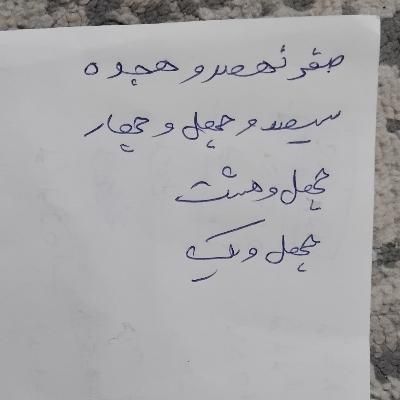 صفر نهصد و هجده
سیصد و چهل و چهار
چهل و هشت
چهل و یک